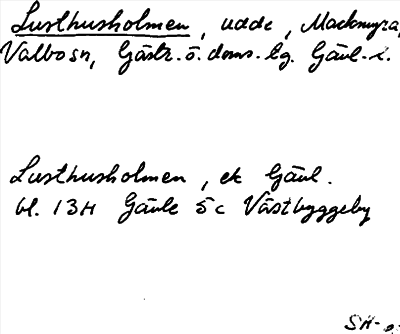 Lusthusholmen, udde, Mackmyra,
Valbo sn, Gästr. ö. doms. lg. Gävl. l.
Lusthusholmen, ek Gävl.
bl. 13H Gävle 5c Västbyggeby
SH-